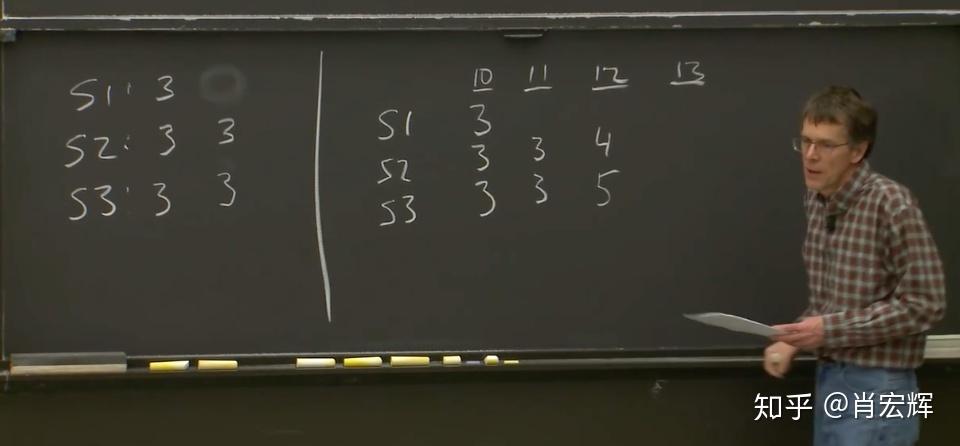 S1: 3
S2: 3 3
S3: 3 3
10 11 12 13
S1 3
S2 3 3 4
S3 3 3 5
知乎 @肖宏辉